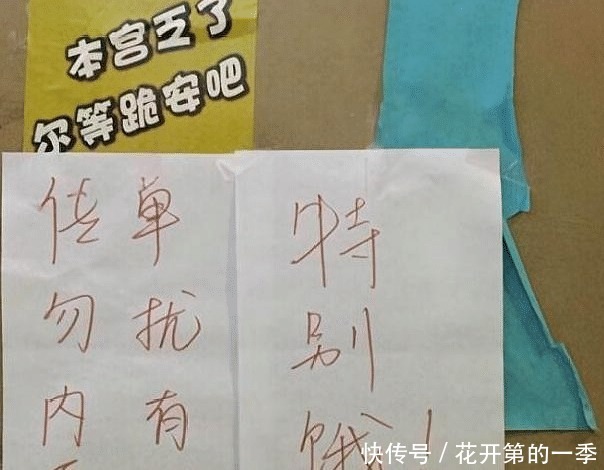 本宫乏了
尔等跪安吧
传单
勿扰
内有
特
别
饿！
快传号 / 花开第的一季